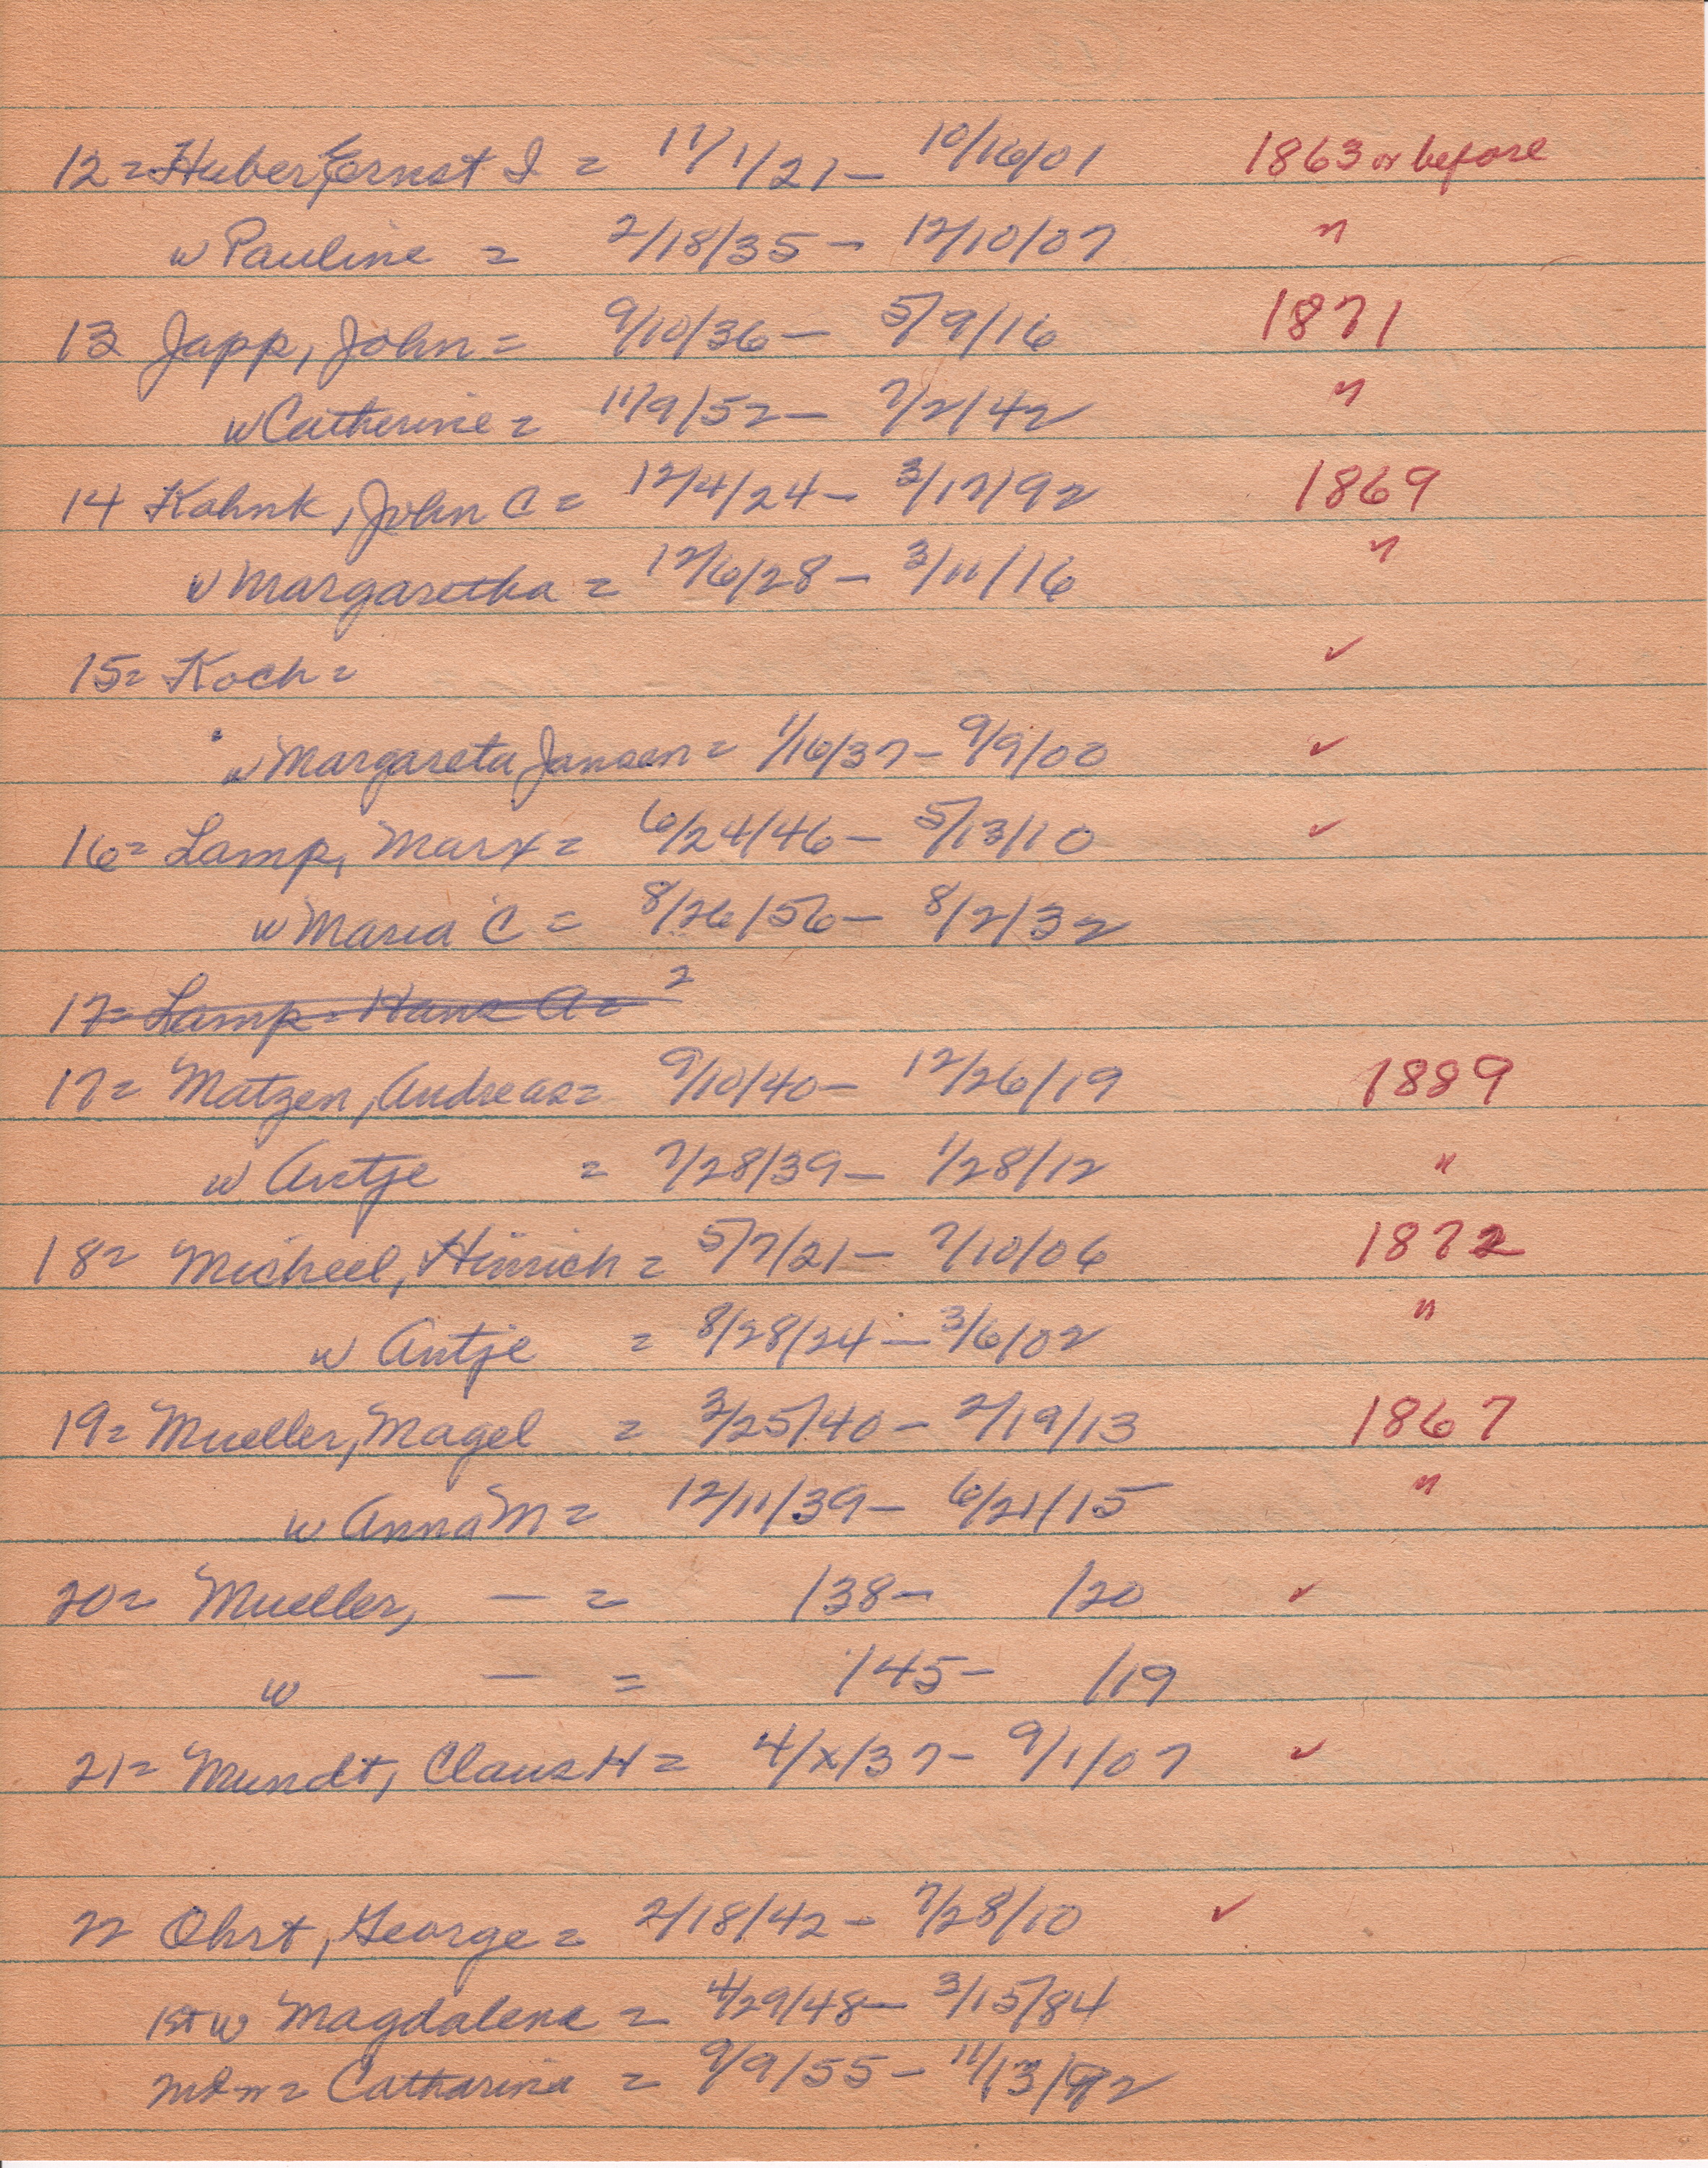 12= Huber, Ernst I = 11/1/21 — 10/16/01 1863 or before
w Pauline = 2/18/35 — 12/10/07 "
13 Japp, John = 9/10/36 — 5/9/16 1871
w Catherine = 11/9/52 — 7/2/42 "
14 Kahnk, John C = 12/4/24 — 3/17/92 1869
w Margaretha = 12/6/28 — 3/11/16 "
15= Koch = ✓
w Margareta Jansen = 1/16/37 — 9/9/00 ✓
16= Lamp, Marx = 6/24/46 — 5/13/10 ✓
w Maria C = 8/26/56 — 8/2/32
17= Lamp = Hans A = 2
17= Matzen, Andreas = 9/10/40 — 12/26/19 1889
w Antje = 7/28/39 — 1/28/12 "
18= Micheel, Hinrich = 5/7/21 — 7/10/06 1872
w Antje = 8/28/24 — 3/6/02 "
19= Mueller, Nagel = 3/25/40 — 2/19/13 1867
w Anna M = 12/11/39 — 6/21/15 "
20= Mueller, — = /38 — /20 ✓
w — = /45 — /19
21= Mundt, Claus H = 4/x/37 — 9/1/07 ✓
22 Ohrt, George = 2/18/42 — 7/28/10 ✓
1st w Magdalena = 4/29/48 — 3/15/84
= Catharina = 9/9/55 — 11/13/92